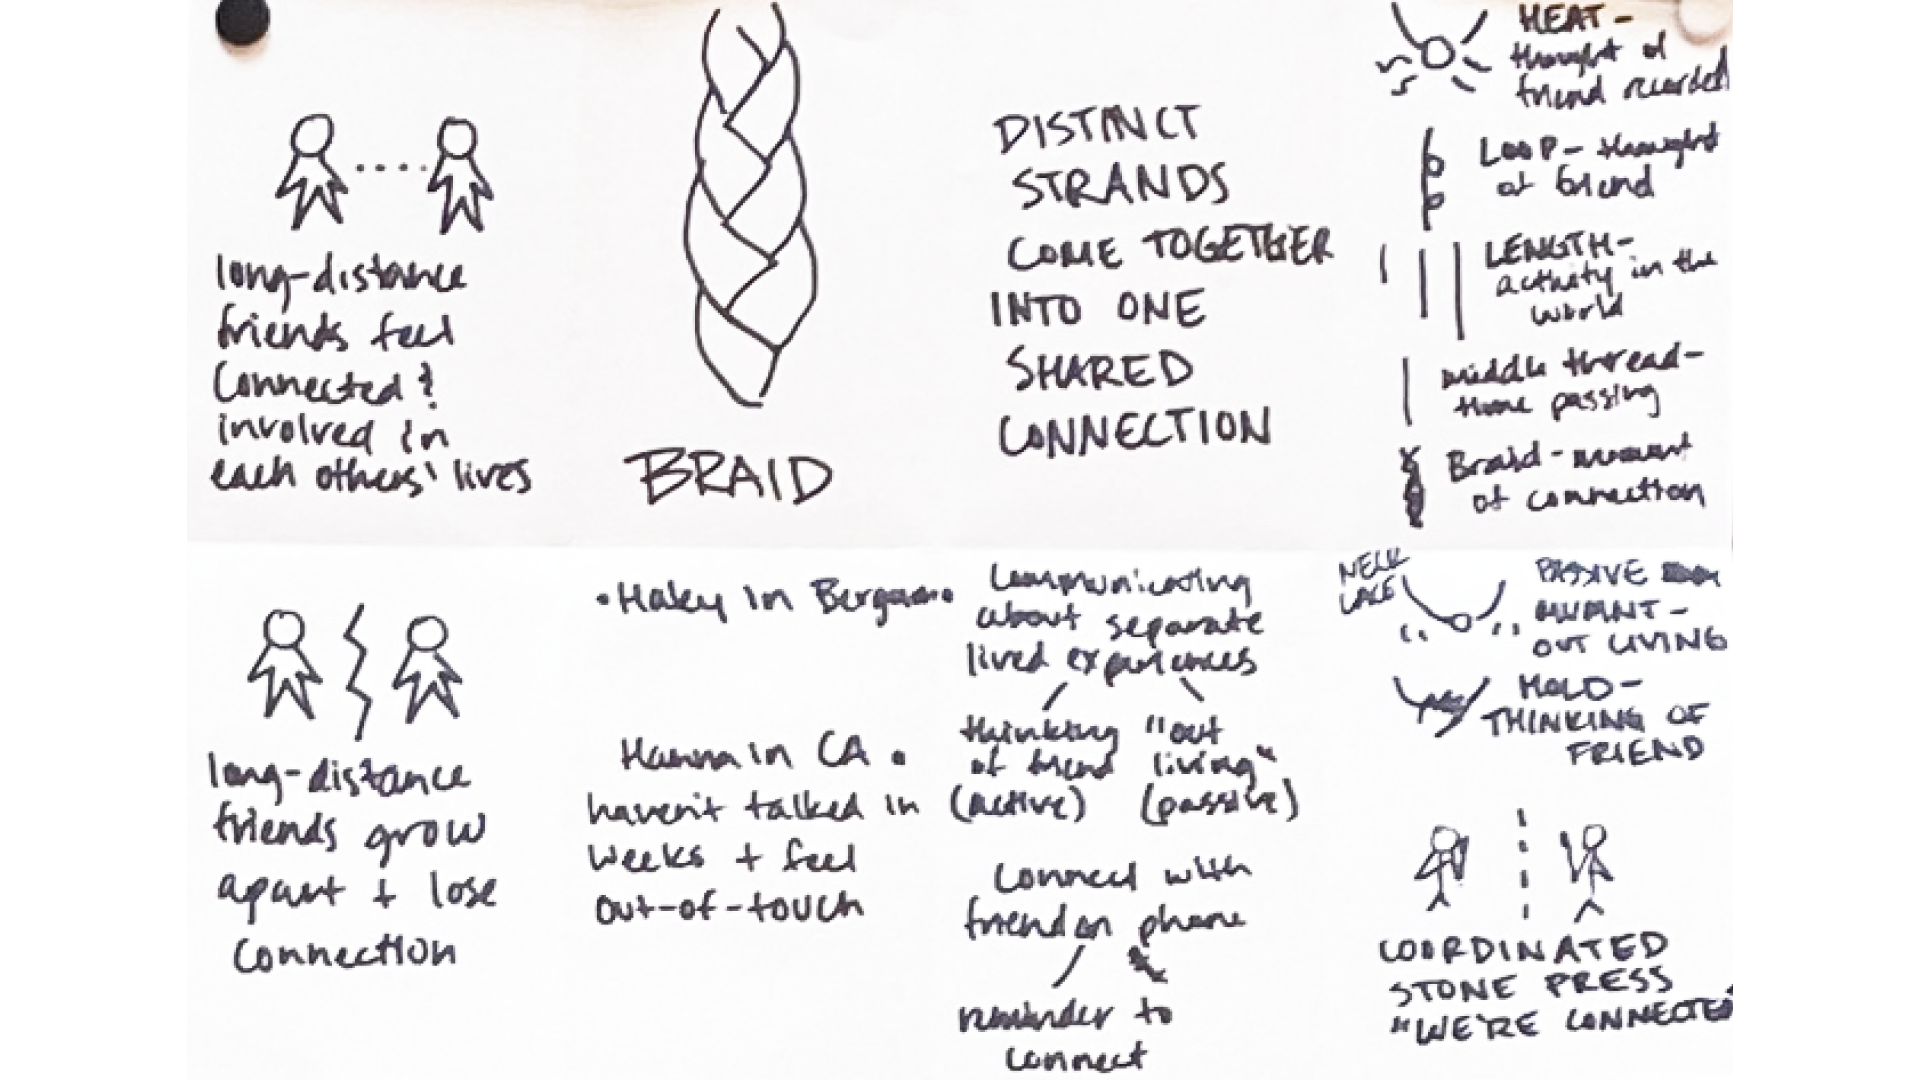 long-distance
friends feel
connected &
involved in
each others' lives
BRAID
DISTINCT
STRANDS
COME TOGETHER
INTO ONE
SHARED
CONNECTION
HEAT-
thought of
friend recorded
LOOP- thought
of friend
LENGTH-
activity in the
world
middle thread-
time passing
Braid - moment
of connection
long-distance
friends grow
apart + lose
connection
• Haley in Bergamo
Hanna in CA •
haven't talked in
weeks + feel
out-of-touch
Communicating
about separate
lived experiences
thinking
of friend
(active)
"out
living"
(passive)
connect with
friend on phone
reminder to
connect
NECK
LACE
PASSIVE
OUT LIVING
HOLD-
THINKING OF
FRIEND
COORDINATED
STONE PRESS
"WE'RE CONNECTED